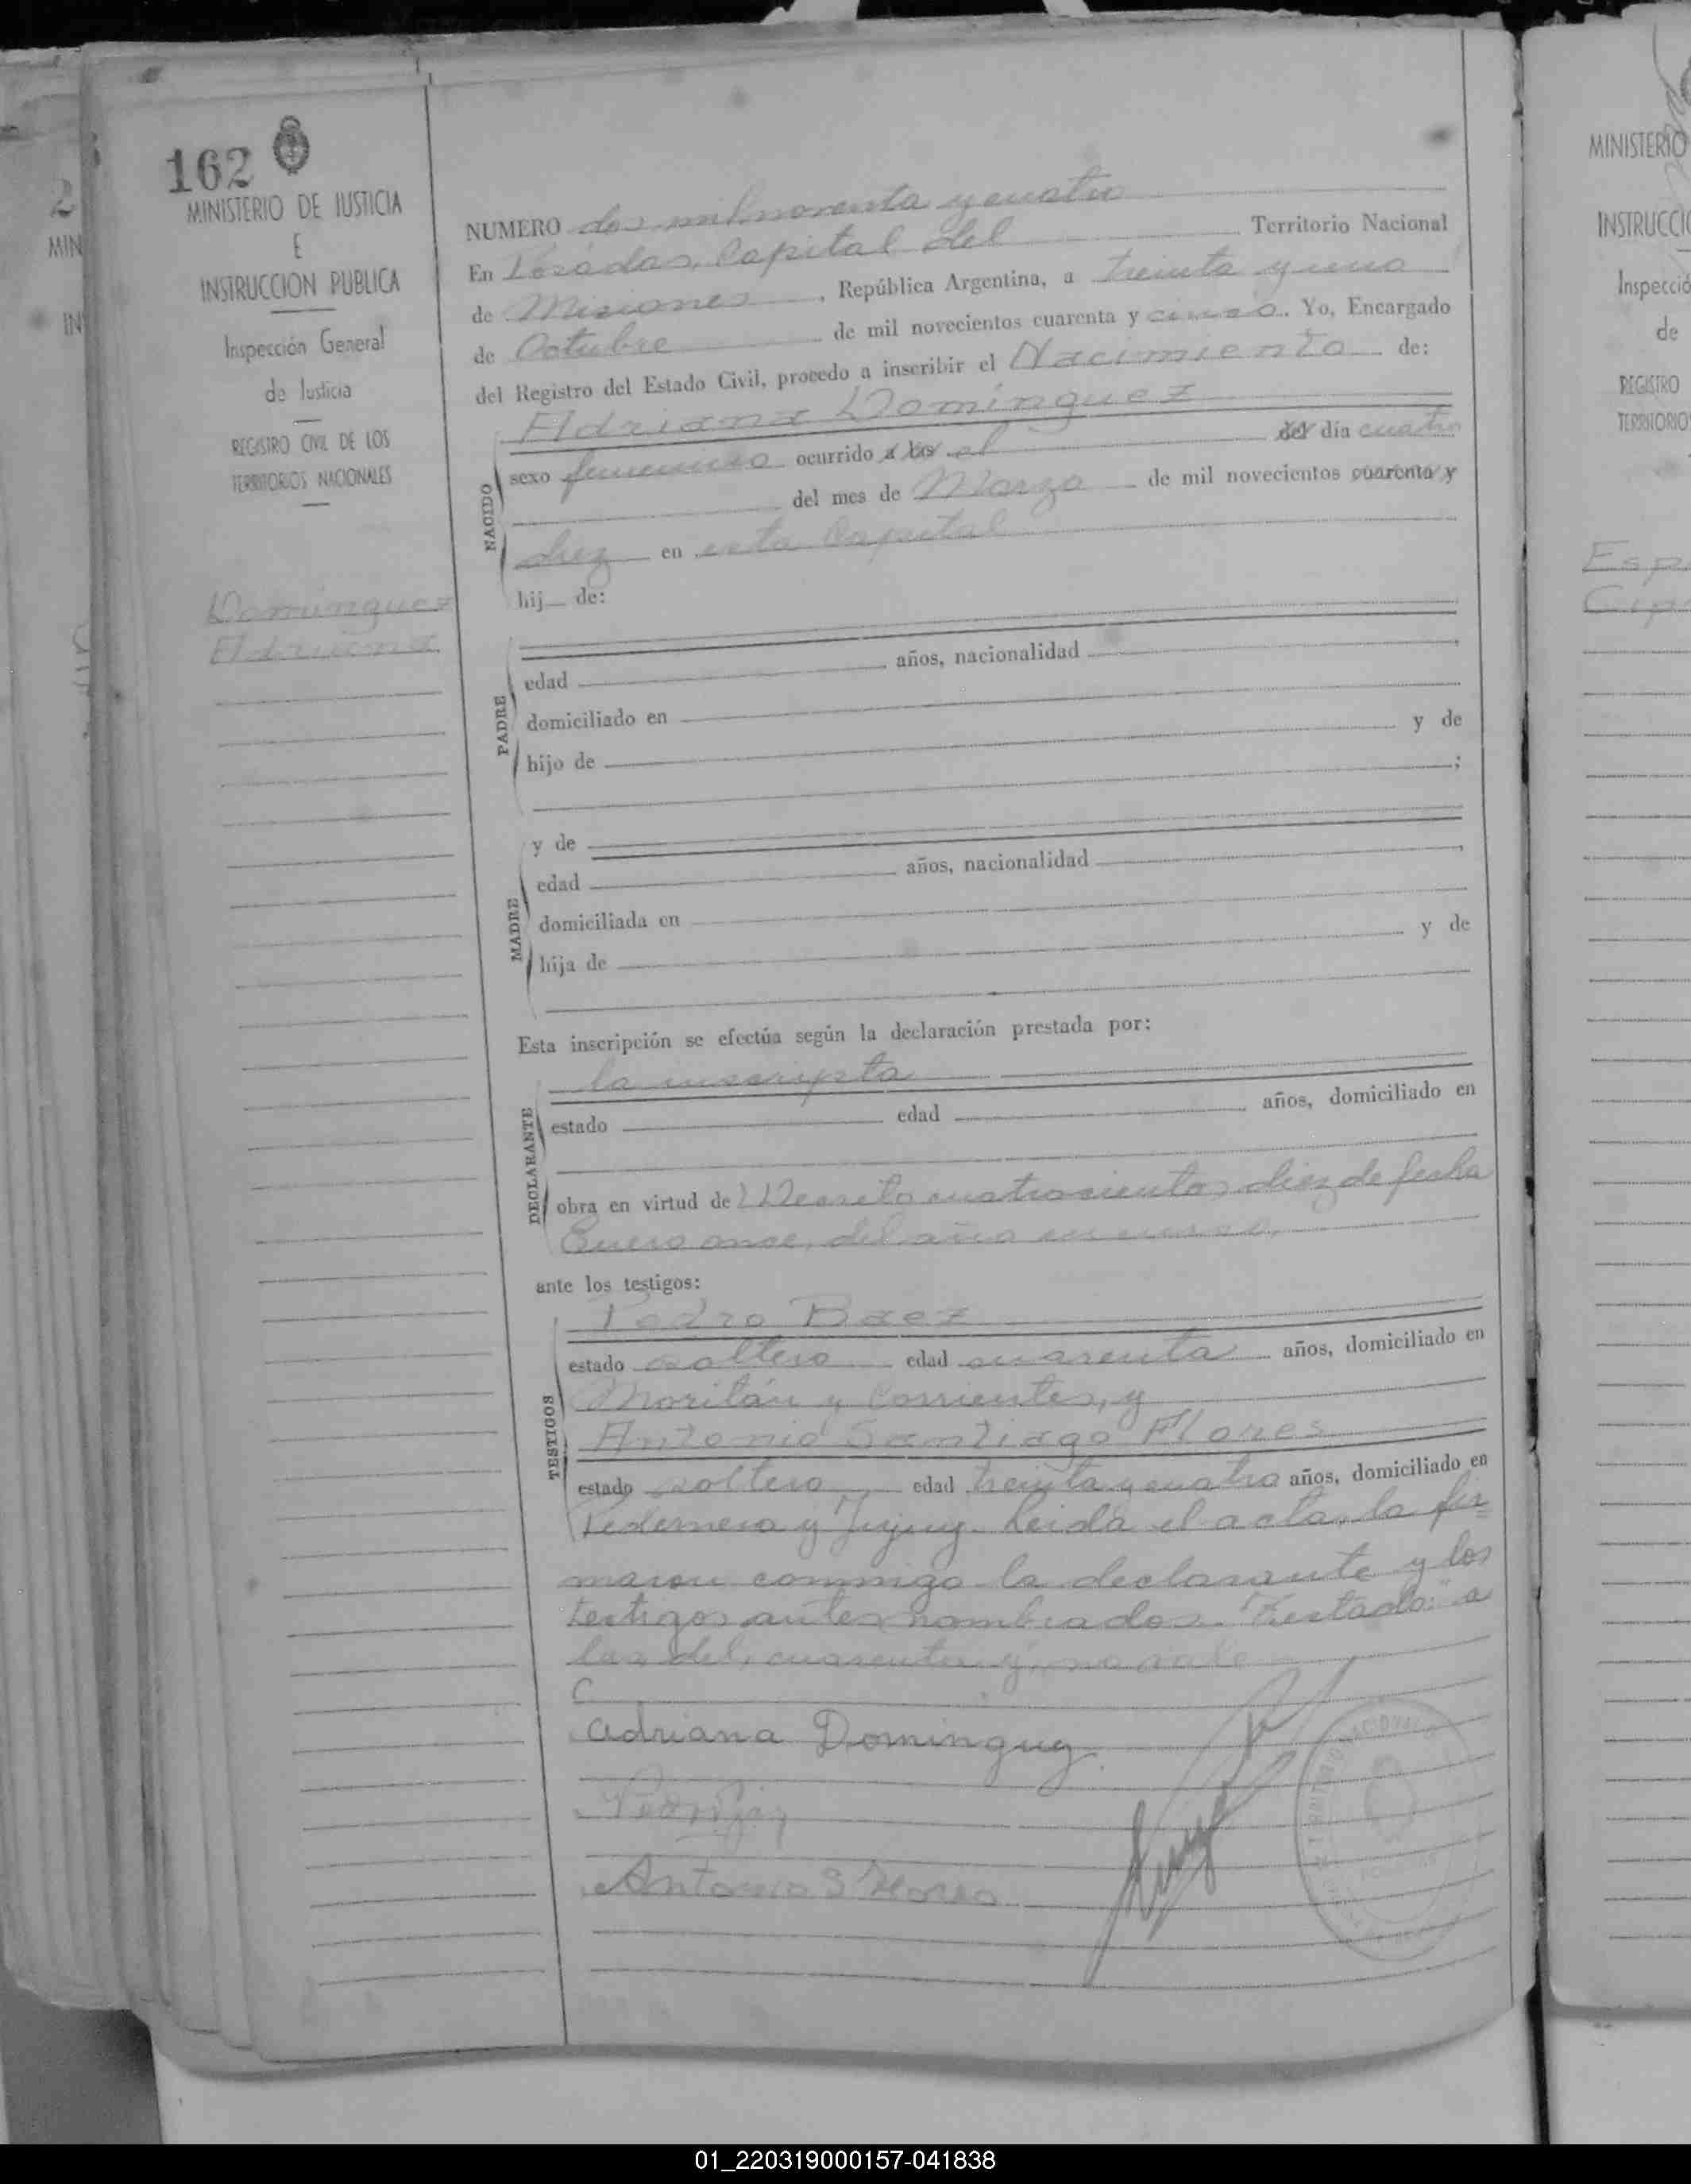 162
MINISTERIO DE JUSTICIA
E
INSTRUCCION PUBLICA
Inspección General
de Justicia
REGISTRO CIVIL DE LOS
TERRITORIOS NACIONALES
Dominguez
Adriana
NUMERO dos mil noventa y cuatro
En Posadas, Capital del Territorio Nacional
de Misiones, República Argentina, a treinta y uno
de Octubre de mil novecientos cuarenta y cinco. Yo, Encargado
del Registro del Estado Civil, procedo a inscribir el Nacimiento de:
Adriana Dominguez
NACIDO
sexo femenino ocurrido a las el del día cuatro
del mes de Marzo de mil novecientos cuarenta y
diez en esta Capital
hij de:
PADRE
edad años, nacionalidad
domiciliado en
hijo de y de
;
y de
MADRE
edad años, nacionalidad
domiciliada en
hija de y de
Esta inscripción se efectúa según la declaración prestada por:
la inscripta
DECLARANTE
estado edad años, domiciliado en
obra en virtud de Decreto cuatrocientos diez de fecha
Enero once, del año en curso,
ante los testigos:
Pedro Baez
TESTIGOS
estado soltero edad cuarenta años, domiciliado en
Moritán y Corrientes, y
Antonio Santiago Flores
estado soltero edad treinta y cuatro años, domiciliado en
Pedernera y Jujuy. Leida el acta, la fir=
maron conmigo la declarante y los
testigos antes nombrados. Testado: "a
las, del, cuarenta y, no vale
adriana Dominguez
Antonio S Flores
MINISTERIO
INSTRUCCIO
Inspecció
de
REGISTRO
TERRITORIO
Esp
Cip
2
MIN
IN
01_220319000157-041838